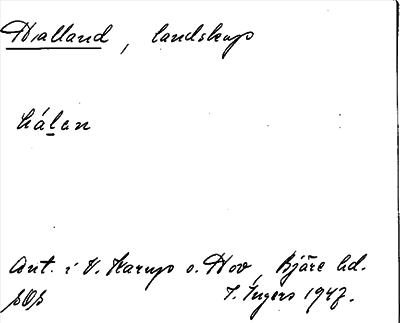 Halland, landskap
hálan
Ant. i V. Karup o. Hov, Bjäre hd.
I. Ingers 1947.